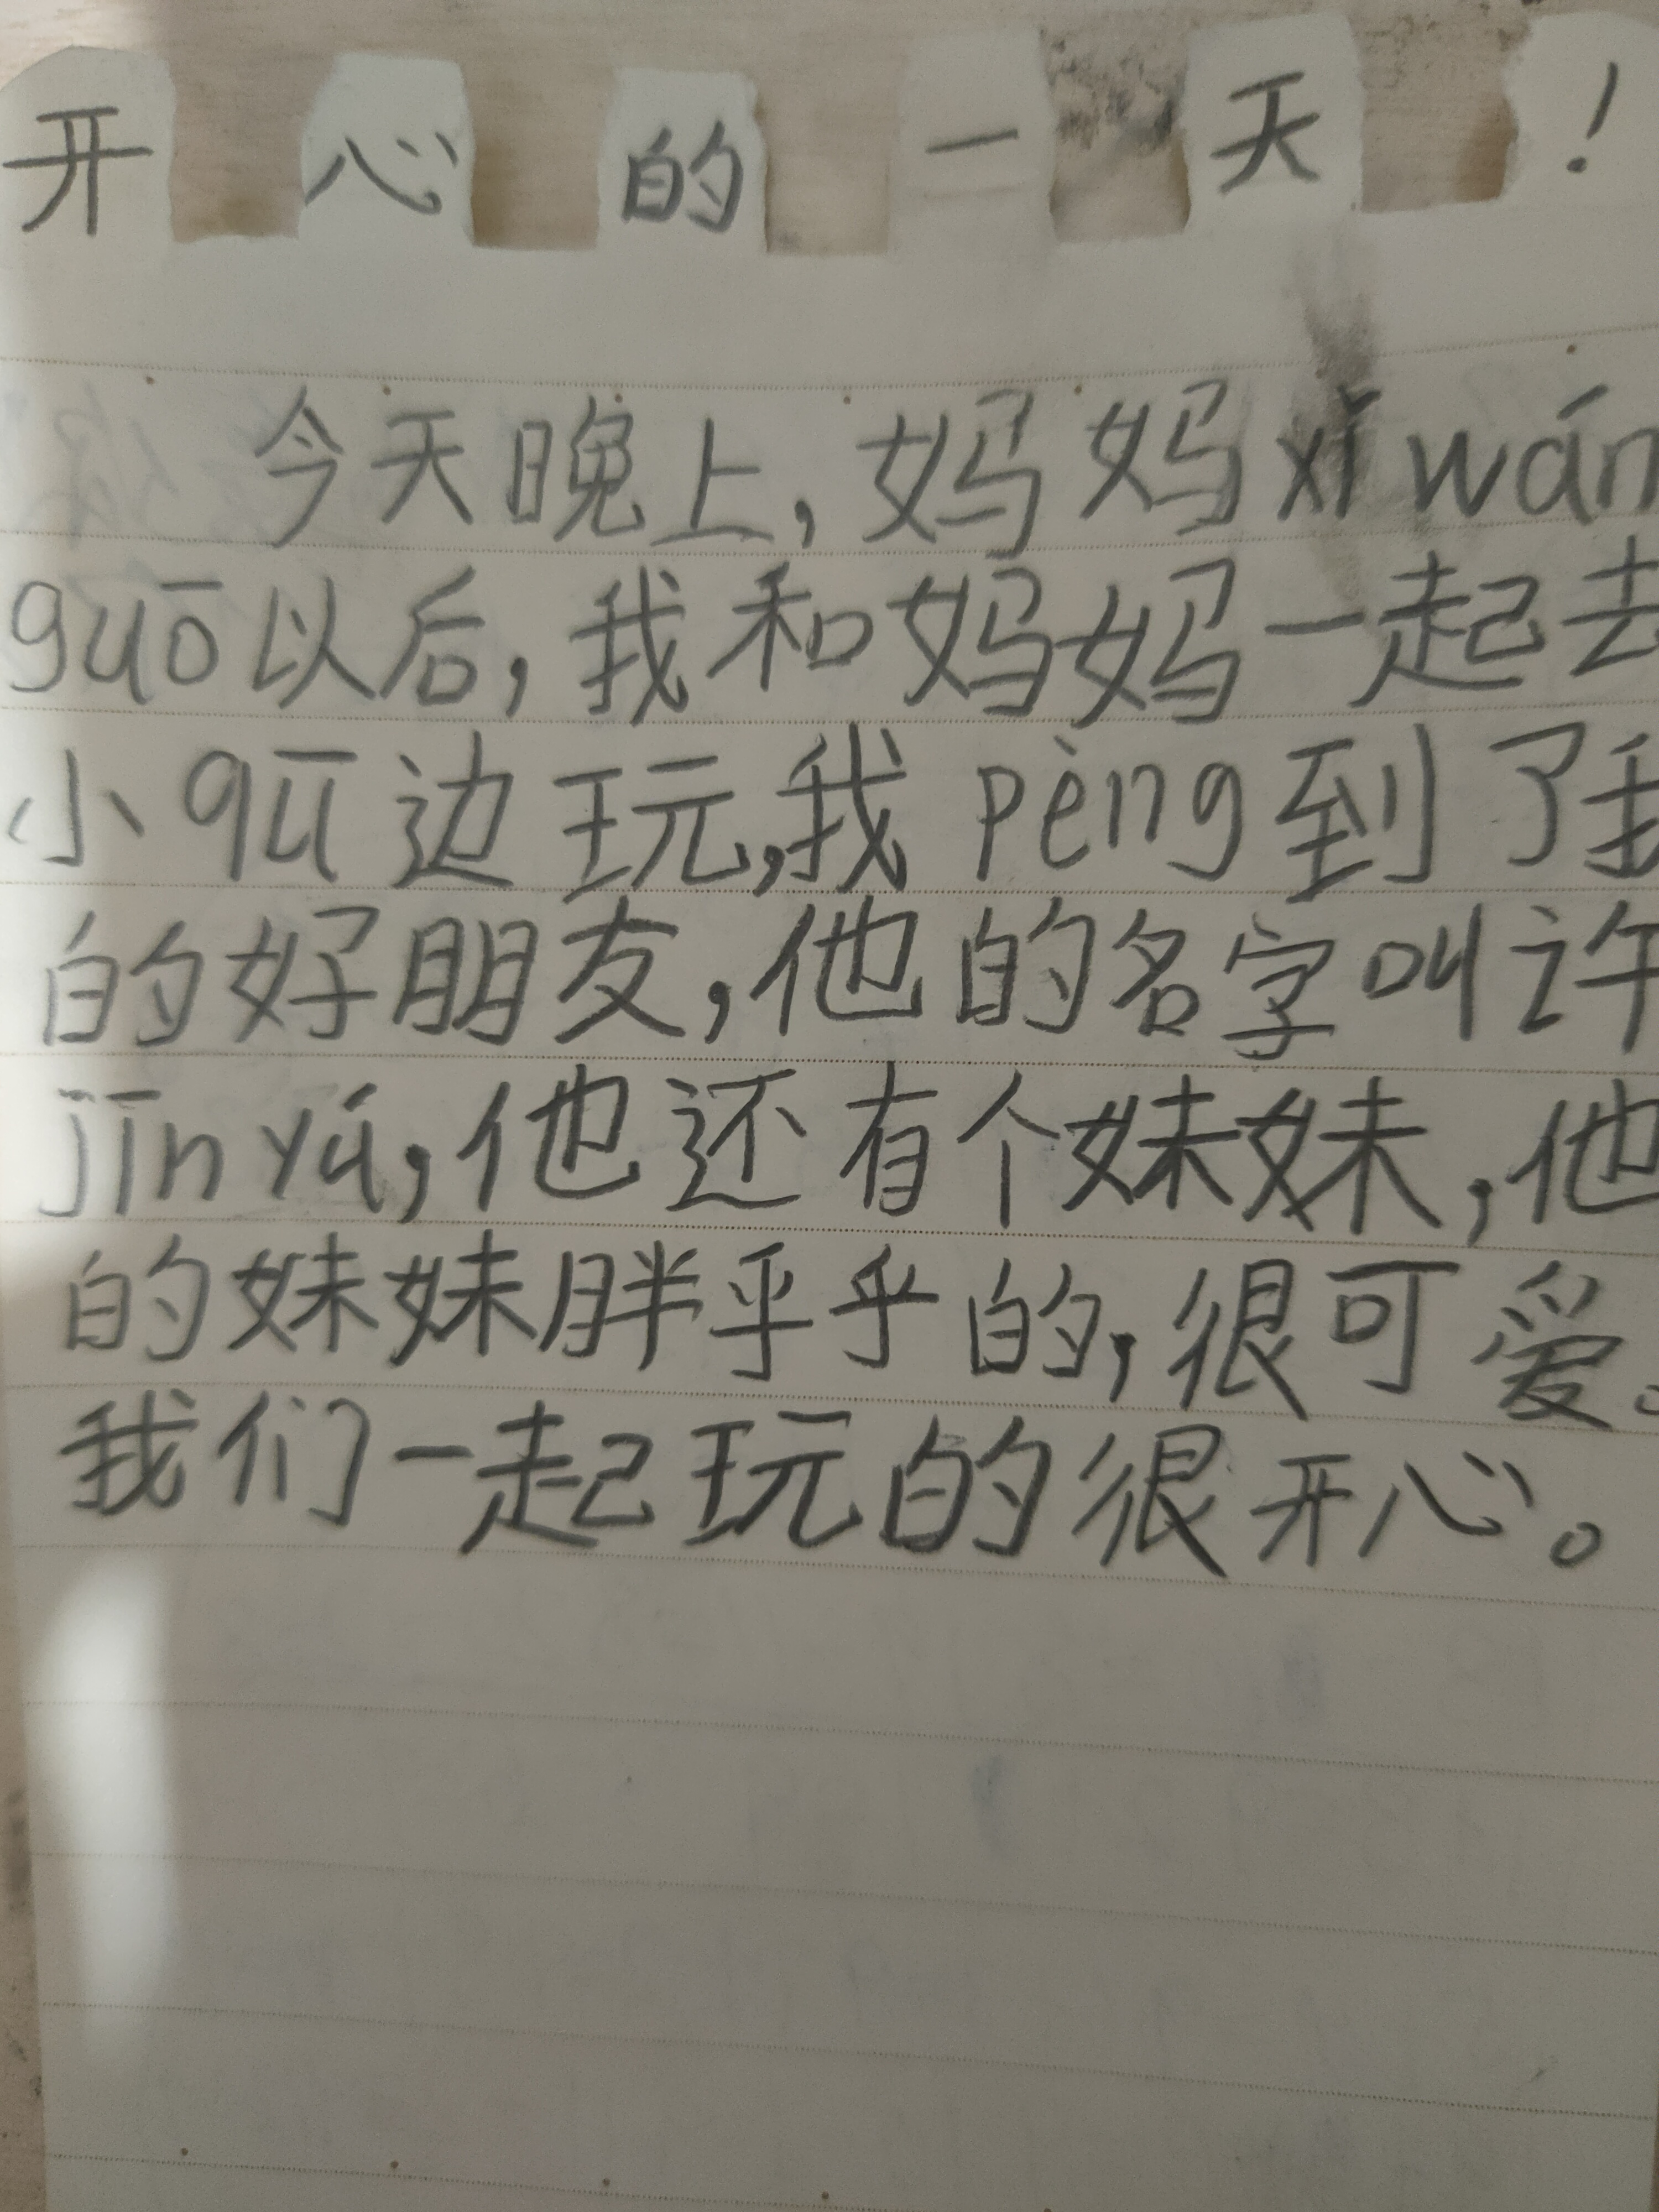 开心的一天！
今天晚上，妈妈xǐ wán
guō以后，我和妈妈一起去
小qū边玩，我pèng到了我
的好朋友，他的名字叫许
jīn yú，他还有个妹妹，他
的妹妹胖乎乎的，很可爱。
我们一起玩的很开心。